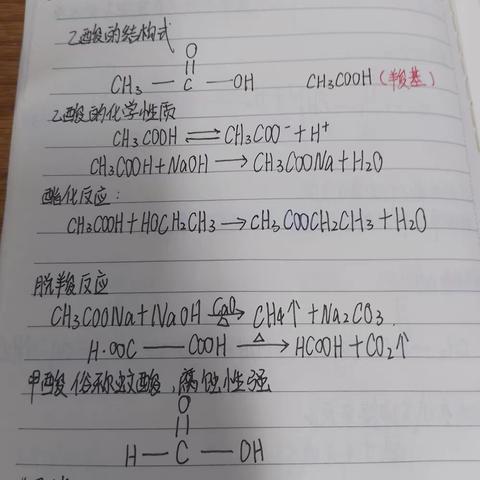 乙酸的结构式
O
||
CH3 — C — OH CH3COOH (羧基)
乙酸的化学性质
CH3COOH ⇌ CH3COO⁻ + H⁺
CH3COOH + NaOH → CH3COONa + H2O
酯化反应:
CH3COOH + HOCH2CH3 → CH3COOCH2CH3 + H2O
脱羧反应
CH3COONa + NaOH —CaO/△→ CH4↑ + Na2CO3.
H·OOC — COOH —△→ HCOOH + CO2↑
甲酸俗称蚁酸,腐蚀性强
O
||
H — C — OH